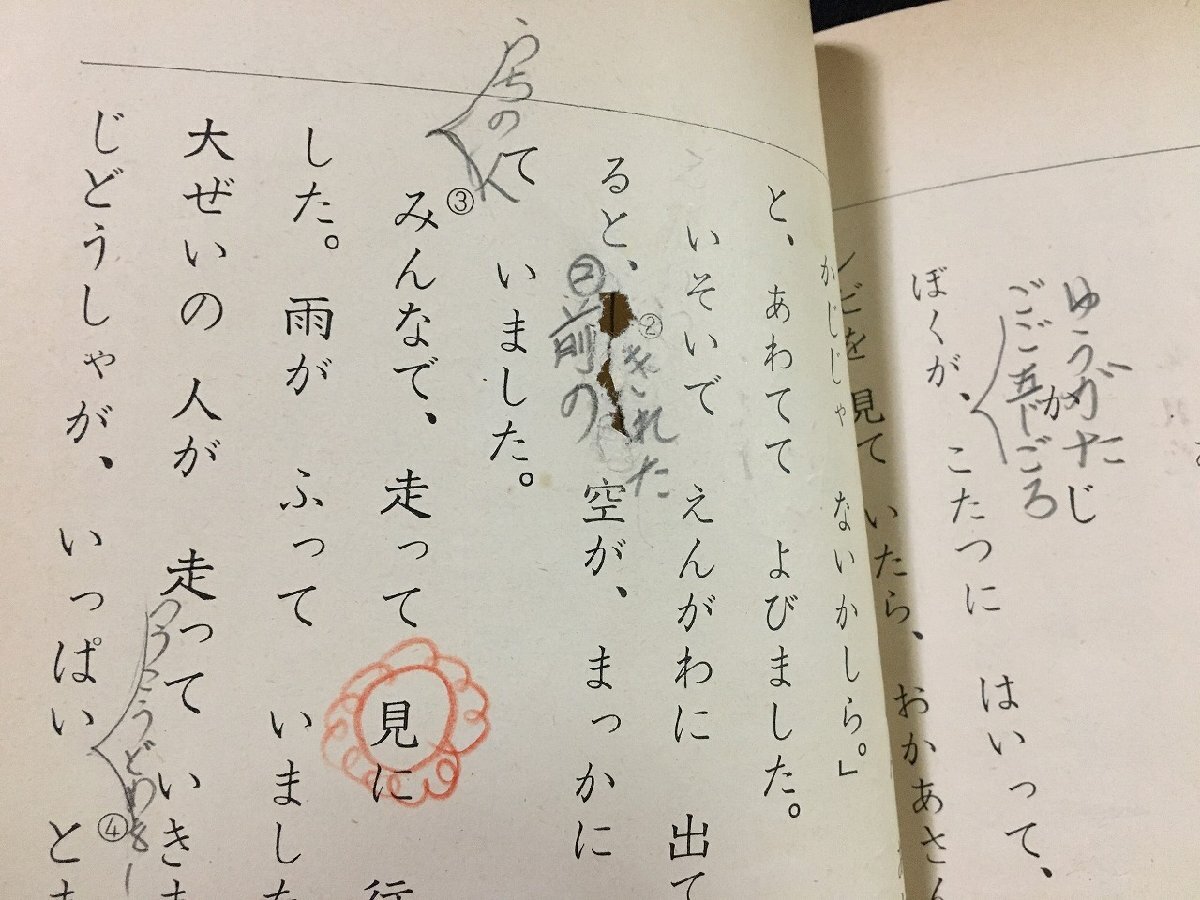 ゆうがた
じ
ごご五じごろ
か
ぼくが、こたつに はいって、
レビを 見て いたら、おかあさん
かじじゃ ないかしら。」
と、あわてて よびました。
いそいで えんがわに 出て
②
きれた
ると、 空が、まっかに
前の
て いました。
うちの
③
みんなで、走って 見に 行
した。雨が ふって いました
大ぜいの 人が 走って いき
④
じどうしゃが、いっぱい と